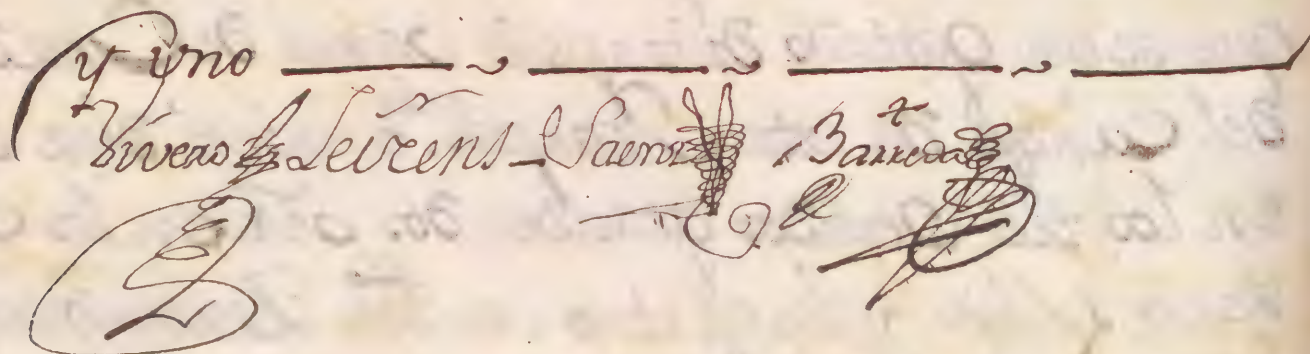 y uno
Vivero Leirens Saenz Barreda